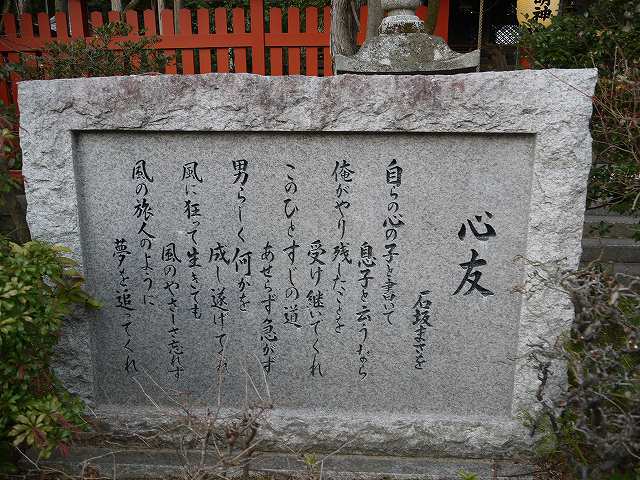 心友
石坂まさを
自らの心の子と書いて
息子と云うなら
俺がやり残したことを
受け継いでくれ
このひとすじの道
あせらず急がず
男らしく何かを
成し遂げてくれ
風に狂って生きても
風のやさしさ忘れず
風の旅人のように
夢を追ってくれ
明神